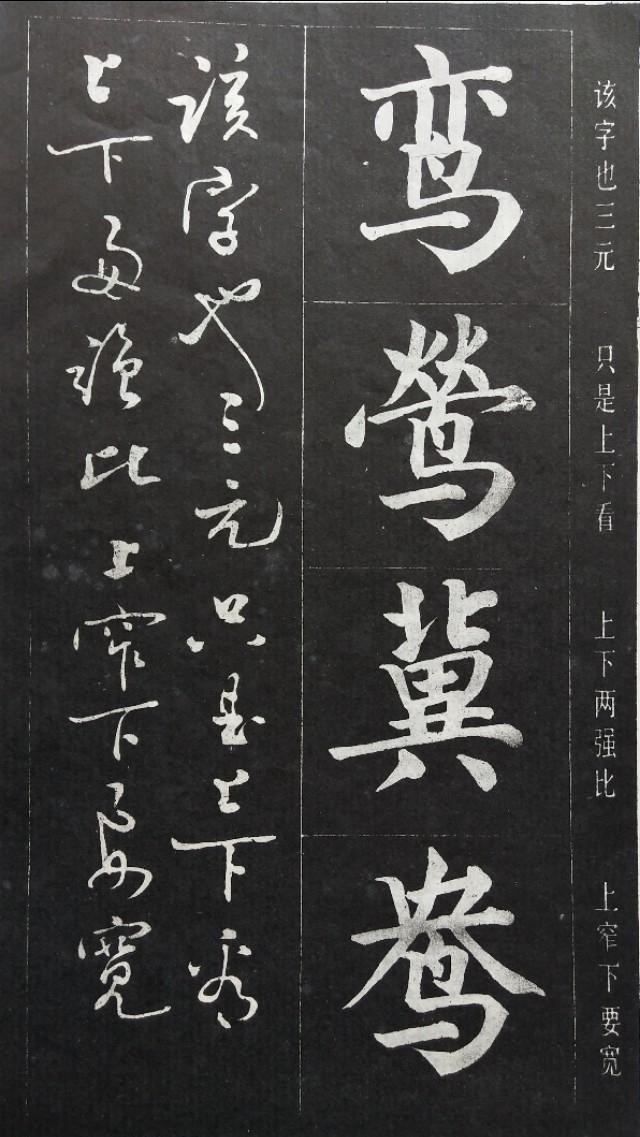 该字也三元 只是上下看 上下两强比 上窄下要宽
鸾莺冀
该字也三元只是上下看
上下两强比上窄下要宽